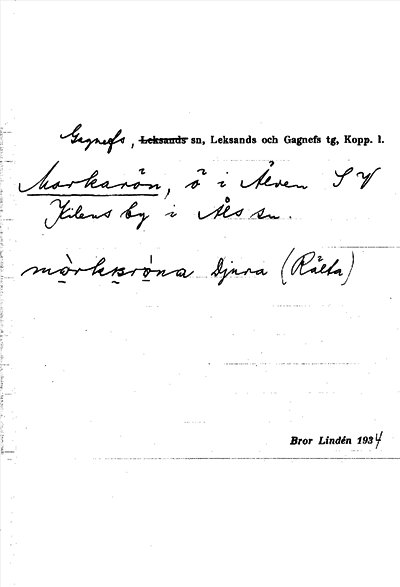 Gagnefs, Leksands sn, Leksands och Gagnefs tg, Kopp. l.
Morkarön, ö i Älven S V
Kilens by i Åls sn.
mòrkaróna Djura (Rälta)
Bror Lindén 1934